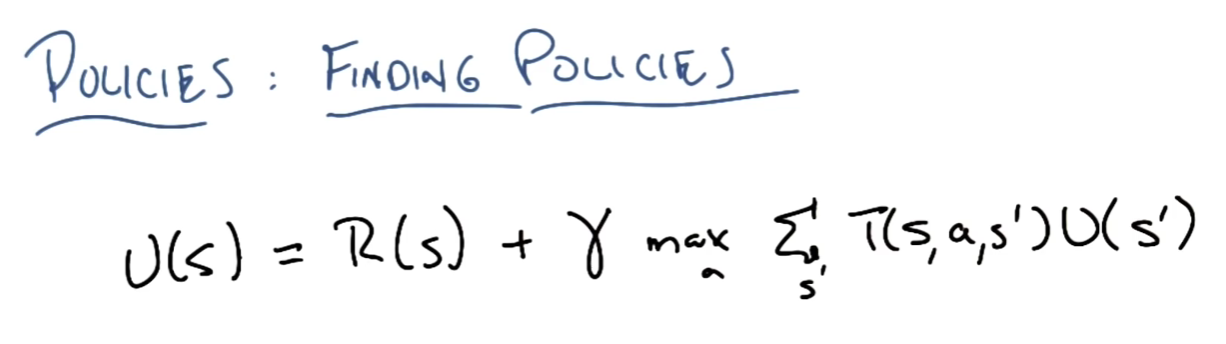 POLICIES: FINDING POLICIES
U(s) = R(s) + γ max_a Σ_s' T(s,a,s')U(s')